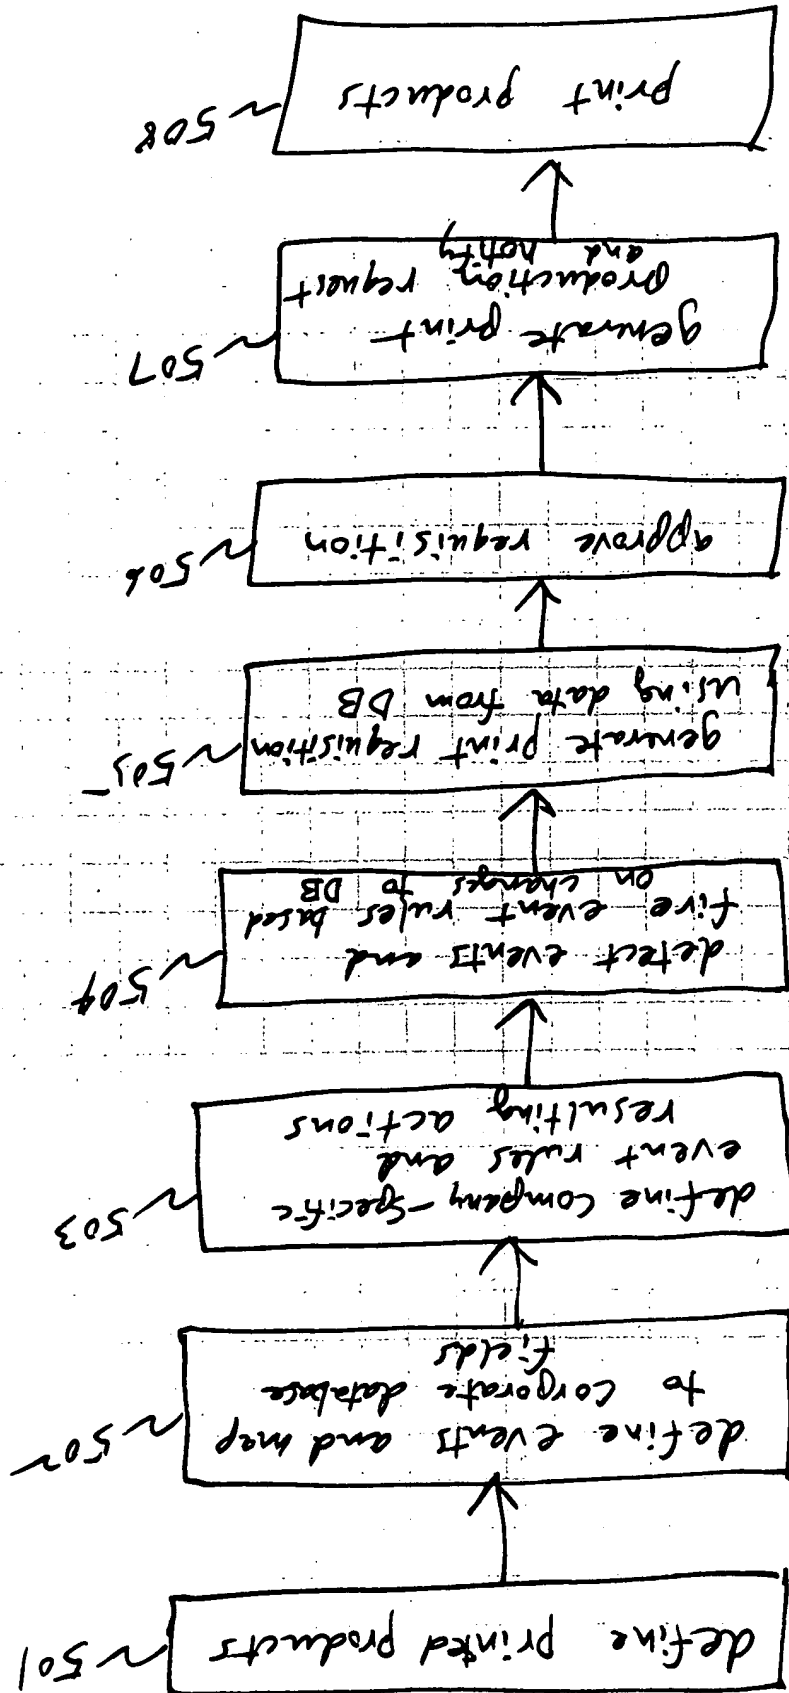 define printed products
501
define events and map
to corporate database
fields
502
define company-specific
event rules and
resulting actions
503
detect events and
fire event rules based
on changes to DB
504
generate print requisition
using data from DB
505
approve requisition
506
generate print
production request
and notify
507
print products
508